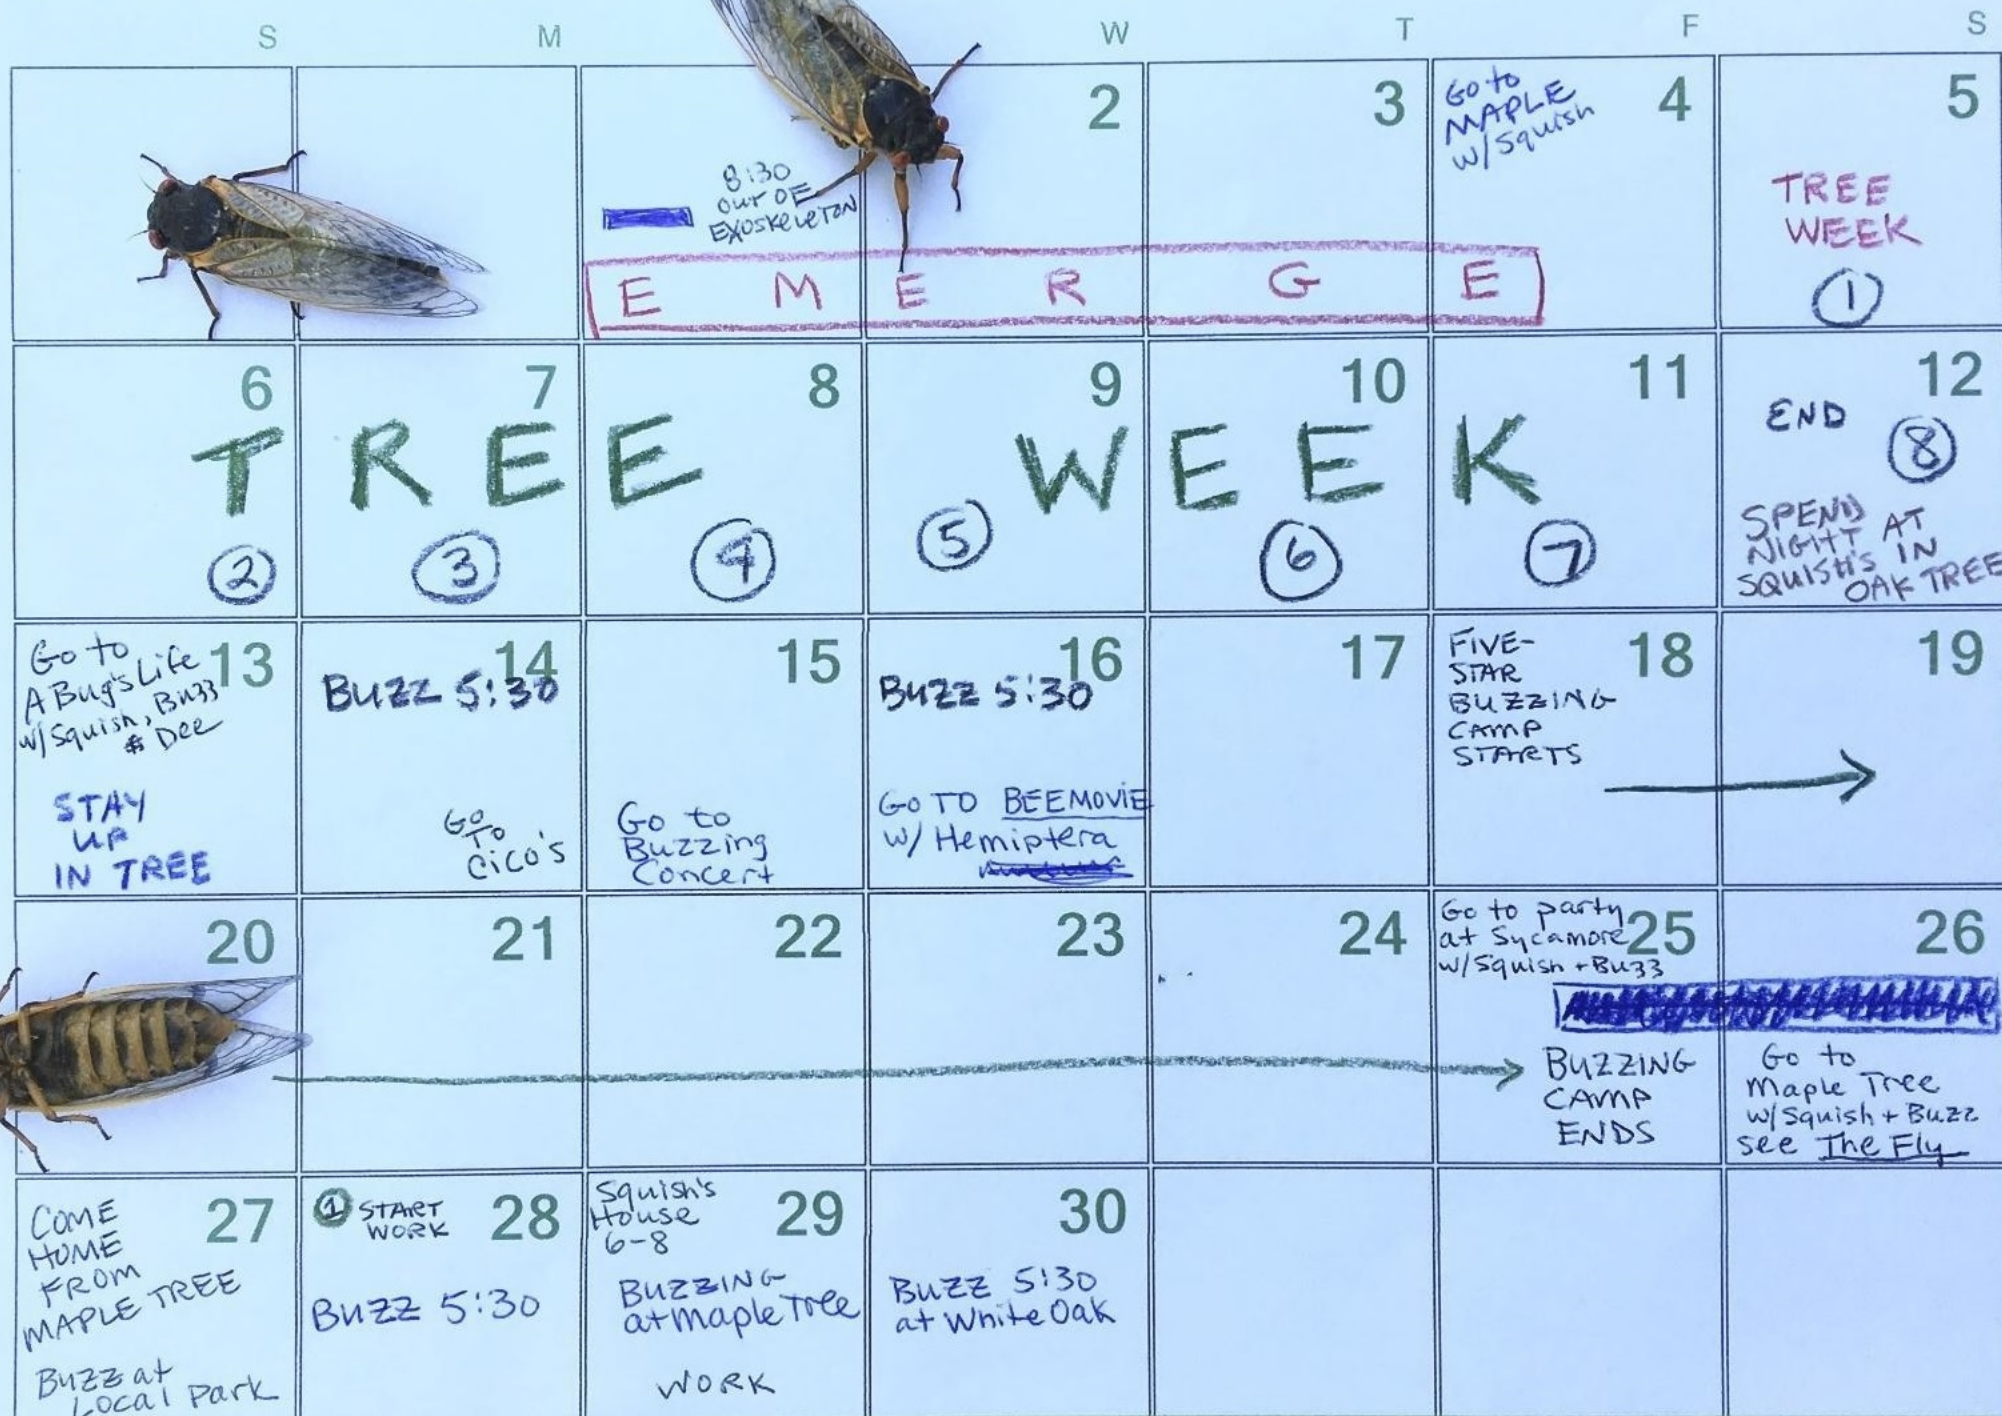 S M W T F S
2
3
4
5
Go to
MAPLE
w/ Squish
8:30
out OF
EXOSKELETON
TREE
WEEK
1
E M E R G E
6
7
8
9
10
11
12
END
8
T R E E W E E K
2
3
4
5
6
7
SPEND
NIGHT AT
SQUISH'S IN
OAK TREE
13
Go to
A Bug's Life
w/ Squish, Buzz
& Dee
STAY
UP
IN TREE
14
BUZZ 5:30
GO
TO
CiCO'S
15
Go to
Buzzing
Concert
16
BUZZ 5:30
GO TO BEEMOVIE
w/ Hemiptera
17
18
FIVE-
STAR
BUZZING
CAMP
STARTS
19
20
21
22
23
24
25
Go to party
at Sycamore
w/ Squish + Buzz
BUZZING
CAMP
ENDS
26
Go to
Maple Tree
w/ Squish + Buzz
see The Fly
27
COME
HOME
FROM
MAPLE TREE
Buzz at
Local Park
28
1 START
WORK
BUZZ 5:30
29
Squish's
House
6-8
BUZZING
at Maple Tree
WORK
30
BUZZ 5:30
at White Oak